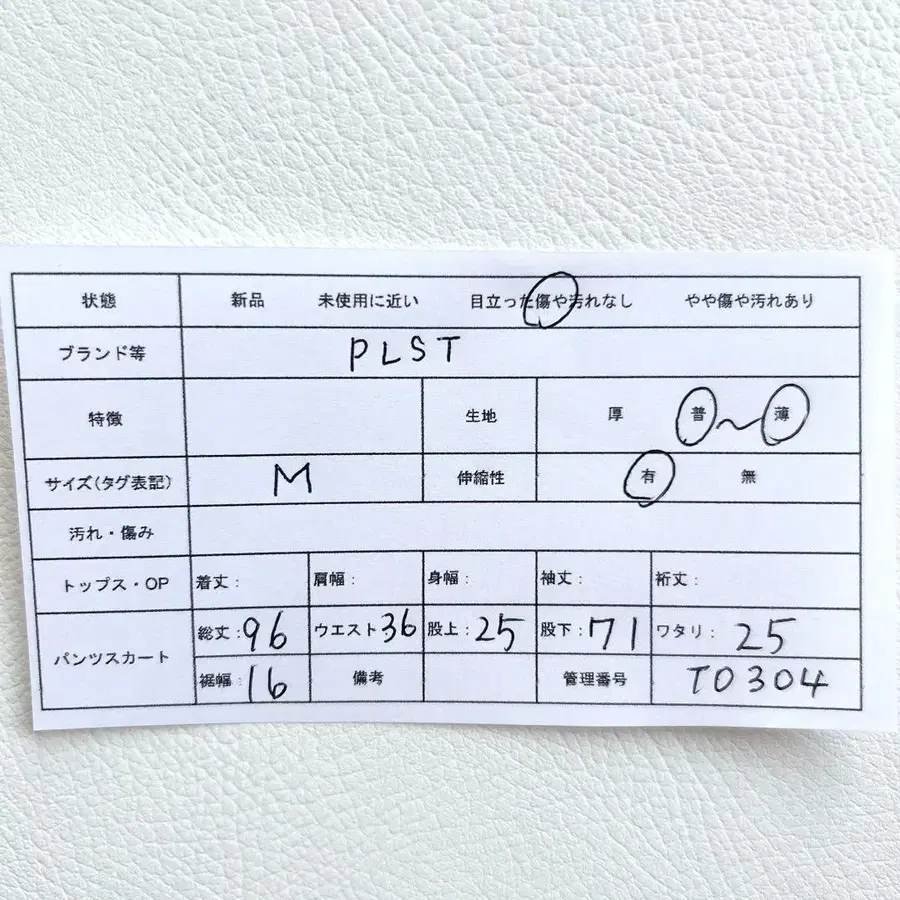 状態 新品 未使用に近い 目立った傷や汚れなし やや傷や汚れあり
ブランド等 PLST
特徴 生地 厚 普〜薄
サイズ(タグ表記) M 伸縮性 有 無
汚れ・傷み
トップス・OP 着丈: 肩幅: 身幅: 袖丈: 裄丈:
パンツスカート 総丈:96 ウエスト36 股上:25 股下:71 ワタリ: 25
裾幅:16 備考 管理番号 TO304